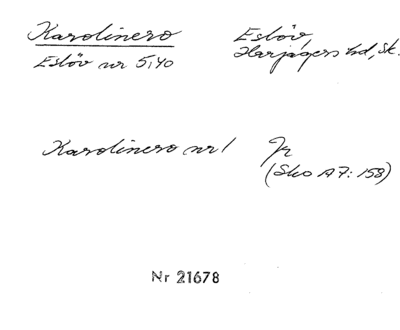 Karolinero Eslöv,
Eslöv nr 5,40 Harjagers hd, Sk.
Karolinero nr 1 Jr
(Sko A7: 158)
Nr 21678